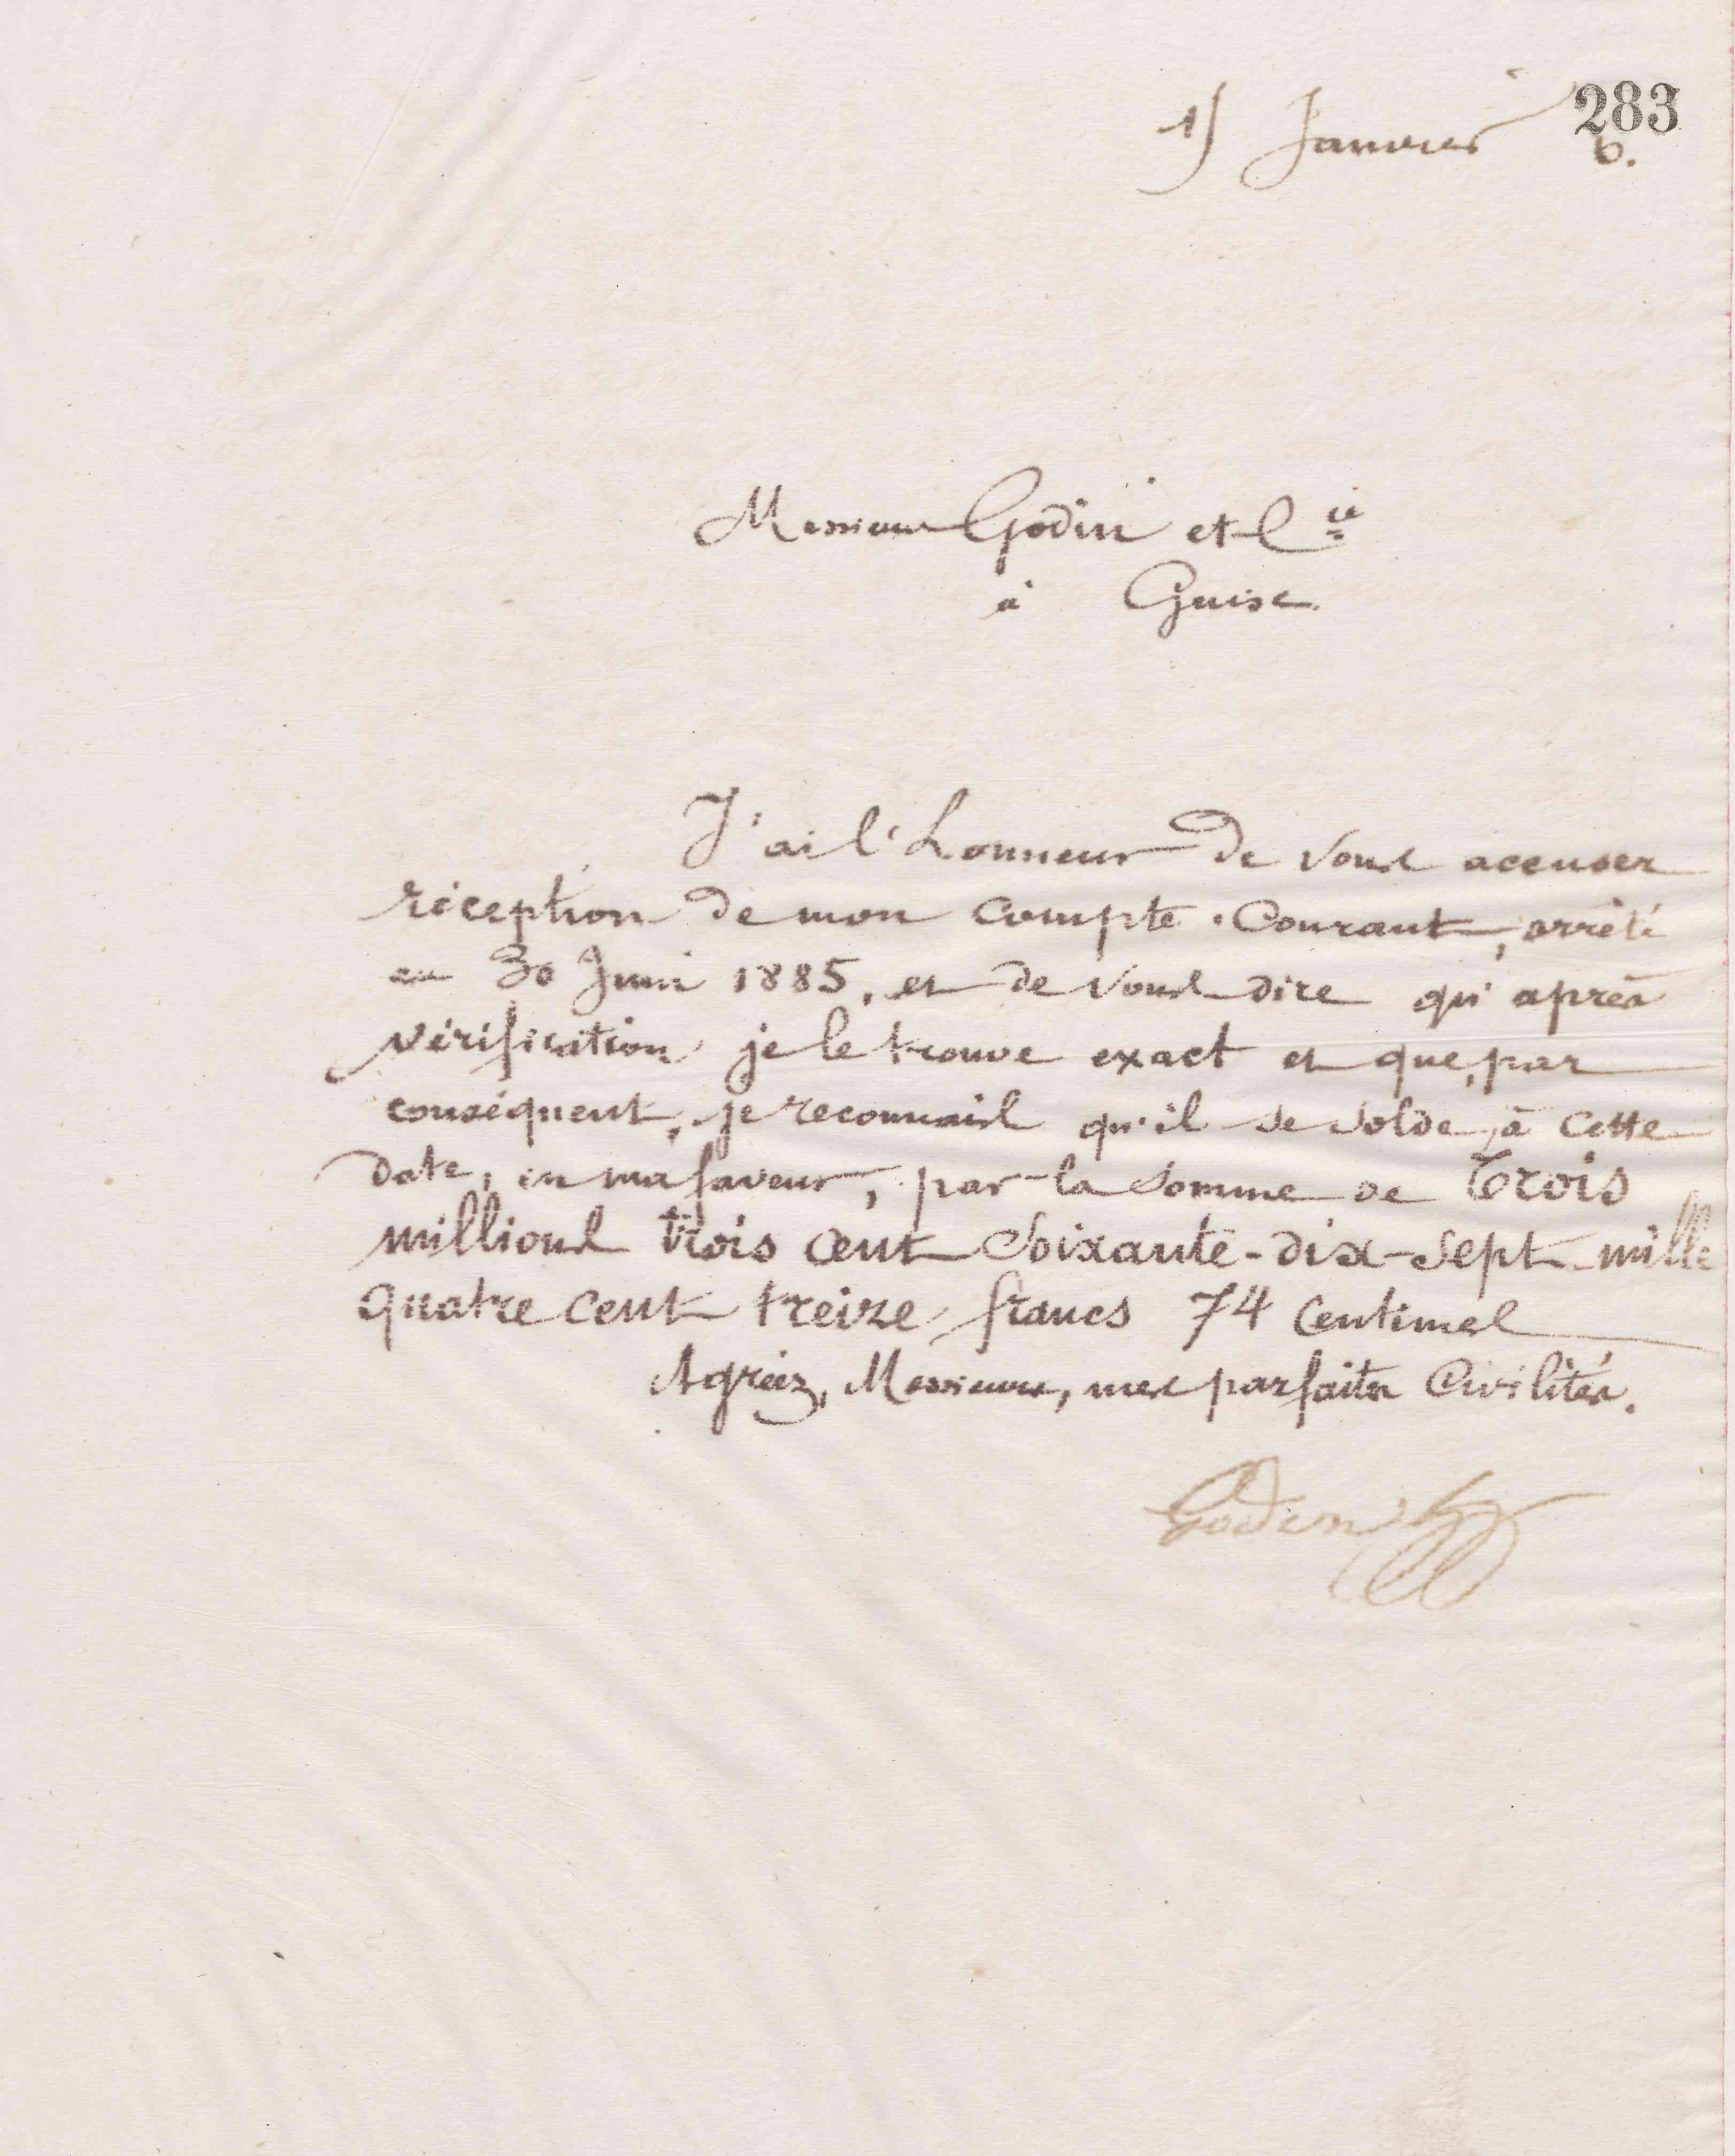 283
15 Janvier 6.
Messieurs Godin et Cie
à Guise.
J'ai l'honneur de vous accuser
réception de mon compte-courant, arrêté
au 30 Juin 1885, et de vous dire qu'après
vérification je le trouve exact et que, par
conséquent, je reconnais qu'il se solde, à cette
date, en ma faveur, par la somme de Trois
millions trois cent soixante-dix-sept mille
quatre cent treize francs 74 centimes
Agréez, Messieurs, mes parfaites civilités.
Godin